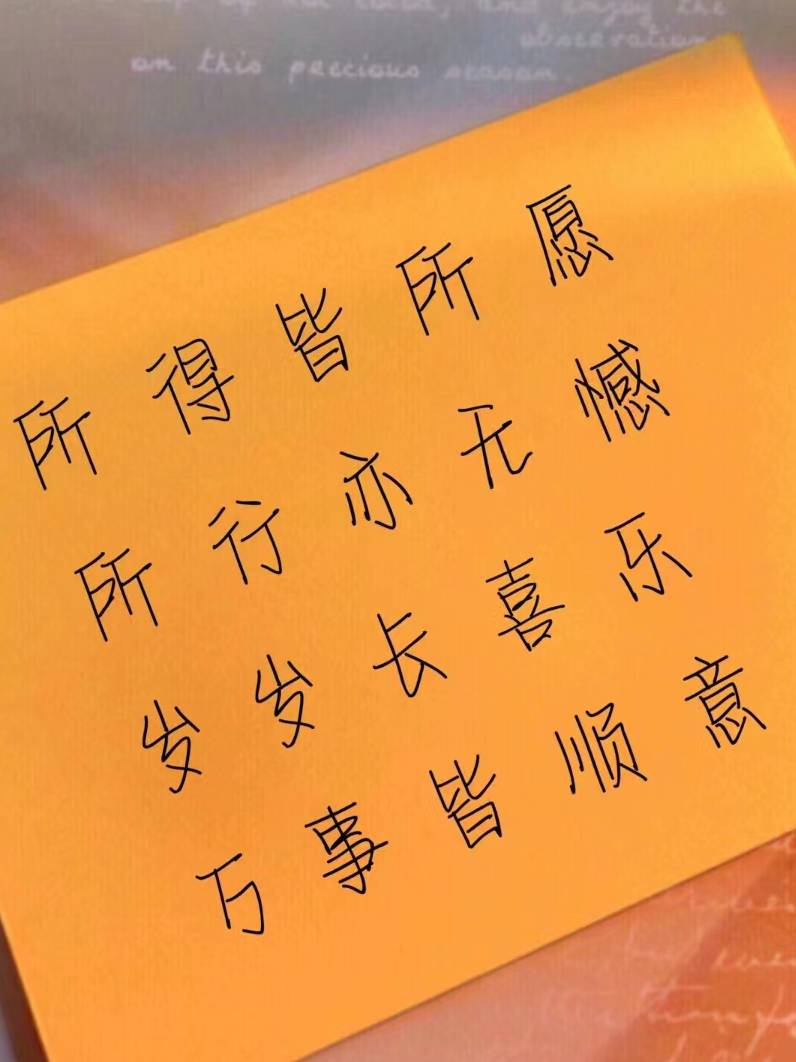 and enjoy the
observation
on this precious season.
所得皆所愿
所行亦无憾
岁岁长喜乐
万事皆顺意